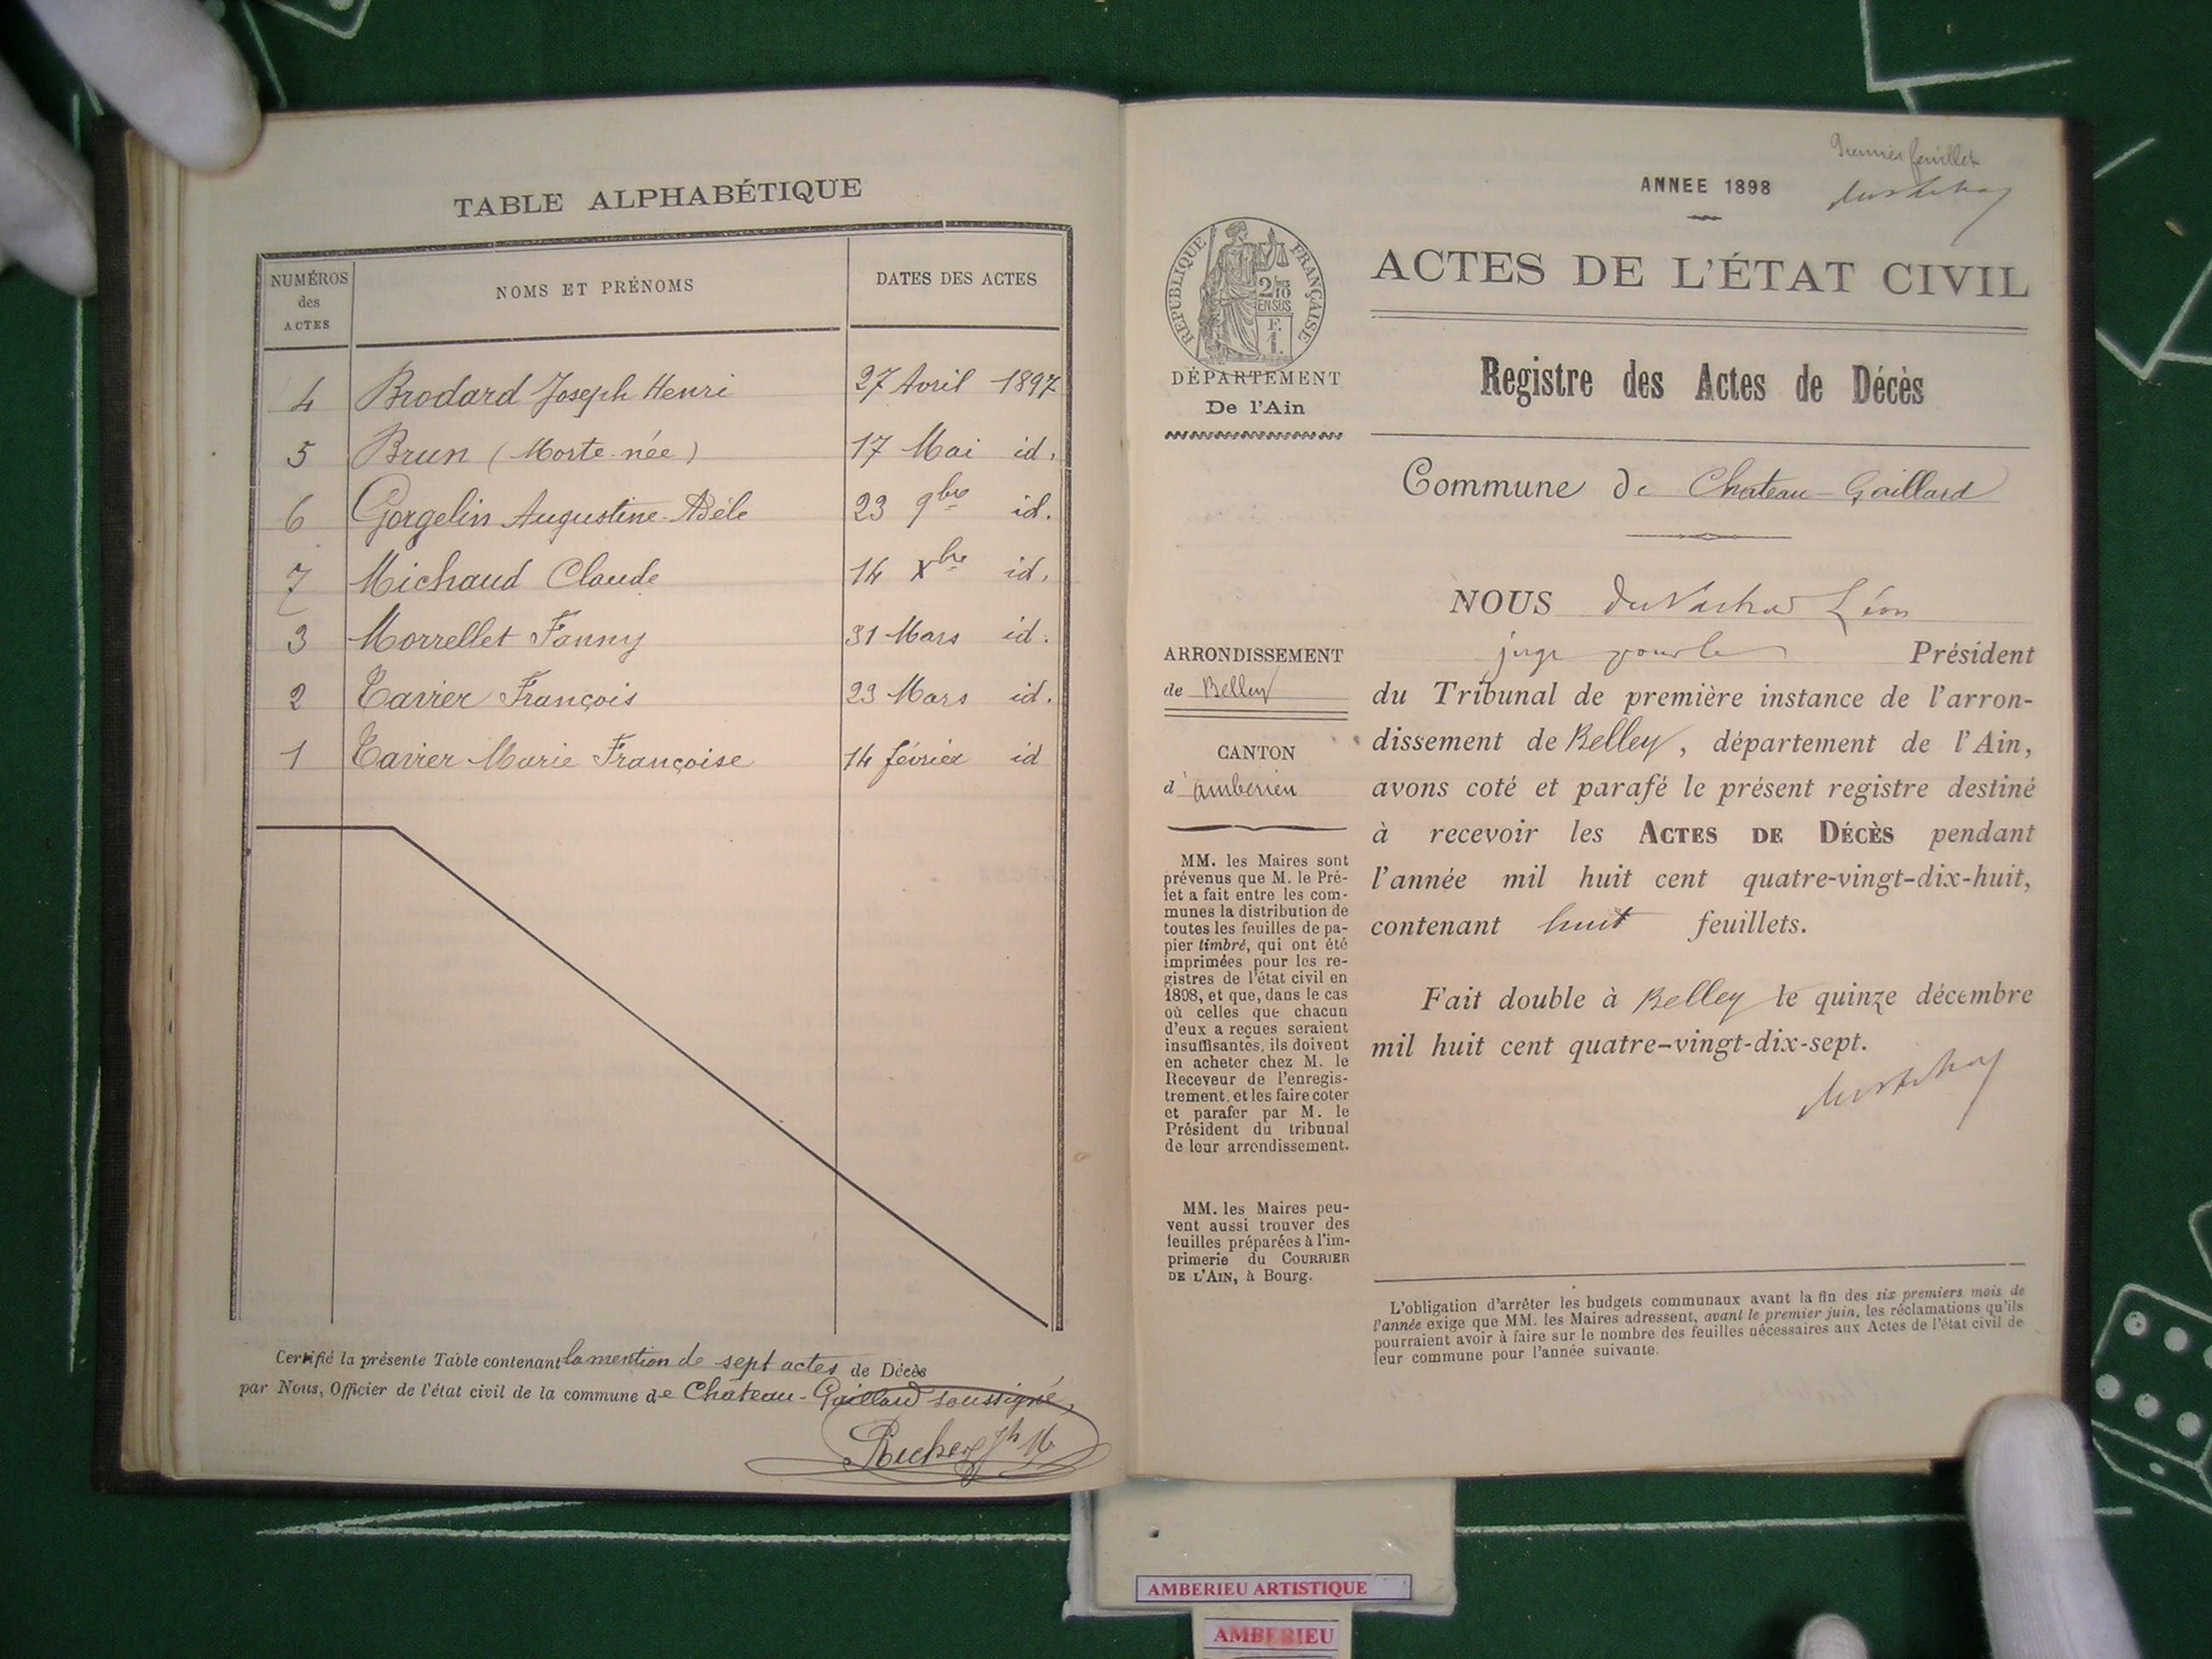 TABLE ALPHABÉTIQUE
NUMÉROS des ACTES
NOMS ET PRÉNOMS
DATES DES ACTES
4 Brodard Joseph Henri 27 Avril 1897
5 Brun (Morte-née) 17 Mai id.
6 Gorgelin Augustine Adèle 23 9bre id.
7 Michaud Claude 14 Xbre id.
3 Morrellet Fanny 31 Mars id.
2 Tavier François 23 Mars id.
1 Tavier Marie Françoise 14 février id
Certifié la présente Table contenant la mention de sept actes de Décès
par Nous, Officier de l'état civil de la commune de Château-Gaillard soussigné,
Premier feuillet
ANNEE 1898
RÉPUBLIQUE FRANÇAISE
2/10 EN SUS
F. 1.
ACTES DE L'ÉTAT CIVIL
DÉPARTEMENT
De l'Ain
Registre des Actes de Décès
Commune de Chateau-Gaillard
ARRONDISSEMENT
de Belley
CANTON
d'amberieu
MM. les Maires sont
prévenus que M. le Pré-
fet a fait entre les com-
munes la distribution de
toutes les feuilles de pa-
pier timbré, qui ont été
imprimées pour les re-
gistres de l'état civil en
1898, et que, dans le cas
où celles que chacun
d'eux a reçues seraient
insuffisantes, ils doivent
en acheter chez M. le
Receveur de l'enregis-
trement, et les faire coter
et parafer par M. le
Président du tribunal
de leur arrondissement.
MM. les Maires peu-
vent aussi trouver des
feuilles préparées à l'im-
primerie du COURRIER
DE L'AIN, à Bourg.
NOUS Léon
juge pour le Président
du Tribunal de première instance de l'arron-
dissement de Belley, département de l'Ain,
avons coté et parafé le présent registre destiné
à recevoir les ACTES DE DÉCÈS pendant
l'année mil huit cent quatre-vingt-dix-huit,
contenant huit feuillets.
Fait double à Belley le quinze décembre
mil huit cent quatre-vingt-dix-sept.
L'obligation d'arrêter les budgets communaux avant la fin des six premiers mois de
l'année exige que MM. les Maires adressent, avant le premier juin, les réclamations qu'ils
pourraient avoir à faire sur le nombre des feuilles nécessaires aux Actes de l'état civil de
leur commune pour l'année suivante.
AMBERIEU ARTISTIQUE
AMBERIEU